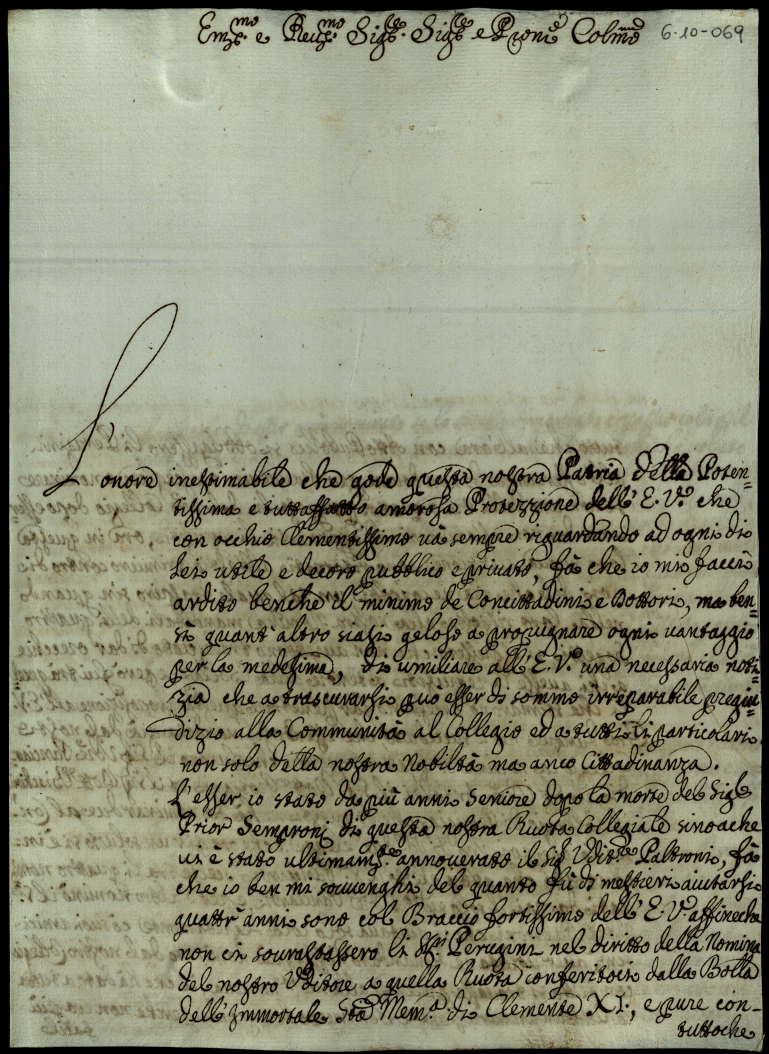 Em.mo e Rev.mo Sig.re Sig.re e P̃rone Colmo
6-10-069
L'onore inestimabile che gode questa nostra Patria della Poten=
tissima e tuttaffatto amorosa Protezzione dell'E. V.a che
con occhio Clementissimo và sempre riguardando ad ogni di
Lei utile e decoro pubblico e privato, fà che io mi facci
ardito benche il minimo de Concittadini e Dottori, ma ben=
sì quant'altro siasi geloso a propugnare ogni vantaggio
per la medesima, di umiliare all'E. V.a una necessaria noti=
zia che a trascurarsi può esser di sommo irreparabile pregiu=
dizio alla Communità al Collegio ed a tutti li particolari
non solo della nostra Nobiltà ma anco Cittadinanza.
L'esser io stato da più anni Seniore dopo la morte del Sig.re
Prior Semproni di questa nostra Ruota Collegiale sino a che
vi è stato ultimam.te annoverato il Sig.r Udit.re Paltroni, fà
che io ben mi souvenghi del quanto fù di mestieri aiutarsi
quattr'anni sono col Braccio fortissimo dell'E. V.a affinche
non ci sourastassero li SS.ri Perugini nel diritto della Nomina
del nostro Uditore a quella Ruota conferitoci dalla Bolla
dell'Immortale S.ta Mem.a di Clemente XI., e pure con-
tuttoche